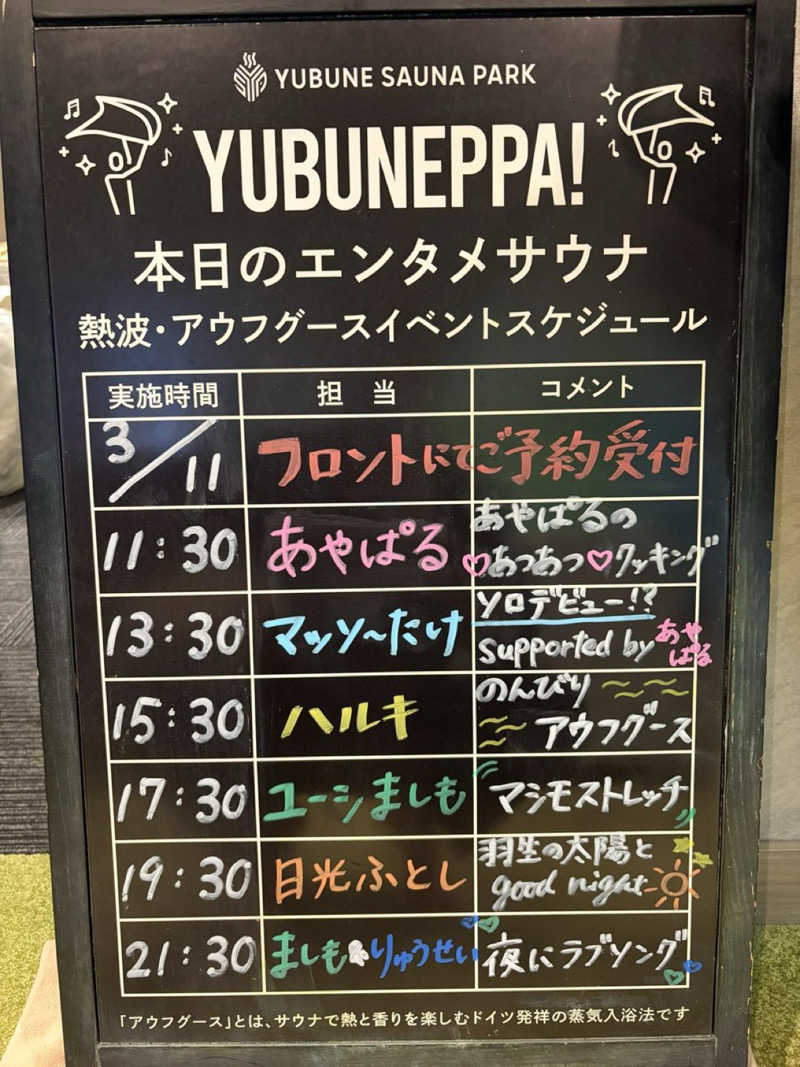 YUBUNE SAUNA PARK
YUBUNEPPA!
本日のエンタメサウナ
熱波・アウフグースイベントスケジュール
実施時間 担当 コメント
3/11 フロントにてご予約受付
11:30 あやぱる あやぱるの
あつあつ♡クッキング
13:30 マッソ〜たけ ソロデビュー!?
supported by あやぱる
15:30 ハルキ のんびり
アウフグース
17:30 ユーシましも マシモストレッチ
19:30 日光ふとし 羽生の太陽と
good night
21:30 ましも りゅうせい 夜にラブソング
「アウフグース」とは、サウナで熱と香りを楽しむドイツ発祥の蒸気入浴法です